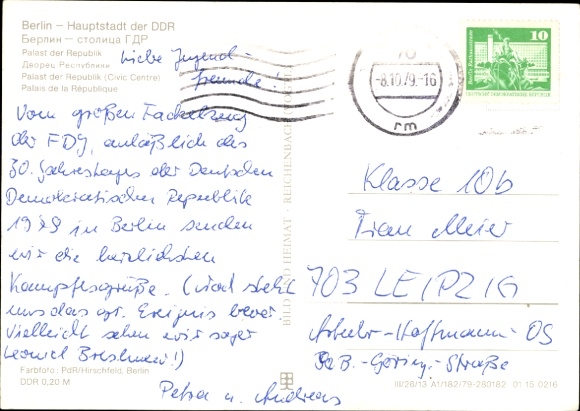 Berlin – Hauptstadt der DDR
Берлин – столица ГДР
Palast der Republik
Дворец Республики
Palast der Republik (Civic Centre)
Palais de la République
Liebe Jugend-
freunde!
Vom großen Fackelzug
der FDJ, anläßlich des
30. Jahrestages der Deutschen
Demokratischen Republik
1979 in Berlin senden
wir die herzlichsten
Kampfesgrüße. (Noch steht
uns das gr. Ereignis bevor.
Vielleicht sehen wir sogar
Leonid Breshnew!)
Petra u. Andreas
Farbfoto: PdR/Hirschfeld, Berlin
DDR 0,20 M
BILD UND HEIMAT · REICHENBACH (VOGTL)
-8.10.79.-16
rm
10
Klasse 10b
Frau Meier
703 LEIPZIG
Arthur-Hoffmann-OS
Bernhard-Göring-Straße
III/26/13 A1/182/79-280182 01 15 0216